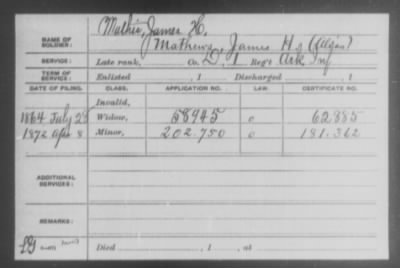 Mathis, James H.
NAME OF SOLDIER: Mathews, James H. (Alias)
SERVICE: Late rank, Co. D, 1 Reg't Ark Inf
TERM OF SERVICE: Enlisted , 1 Discharged , 1
DATE OF FILING. CLASS. APPLICATION NO. LAW. CERTIFICATE NO.
Invalid,
1864 July 25 Widow, 58945 o 62.885
1872 Apr 8 Minor, 202.750 o 181.362
ADDITIONAL SERVICES:
REMARKS:
Died , 1 , at